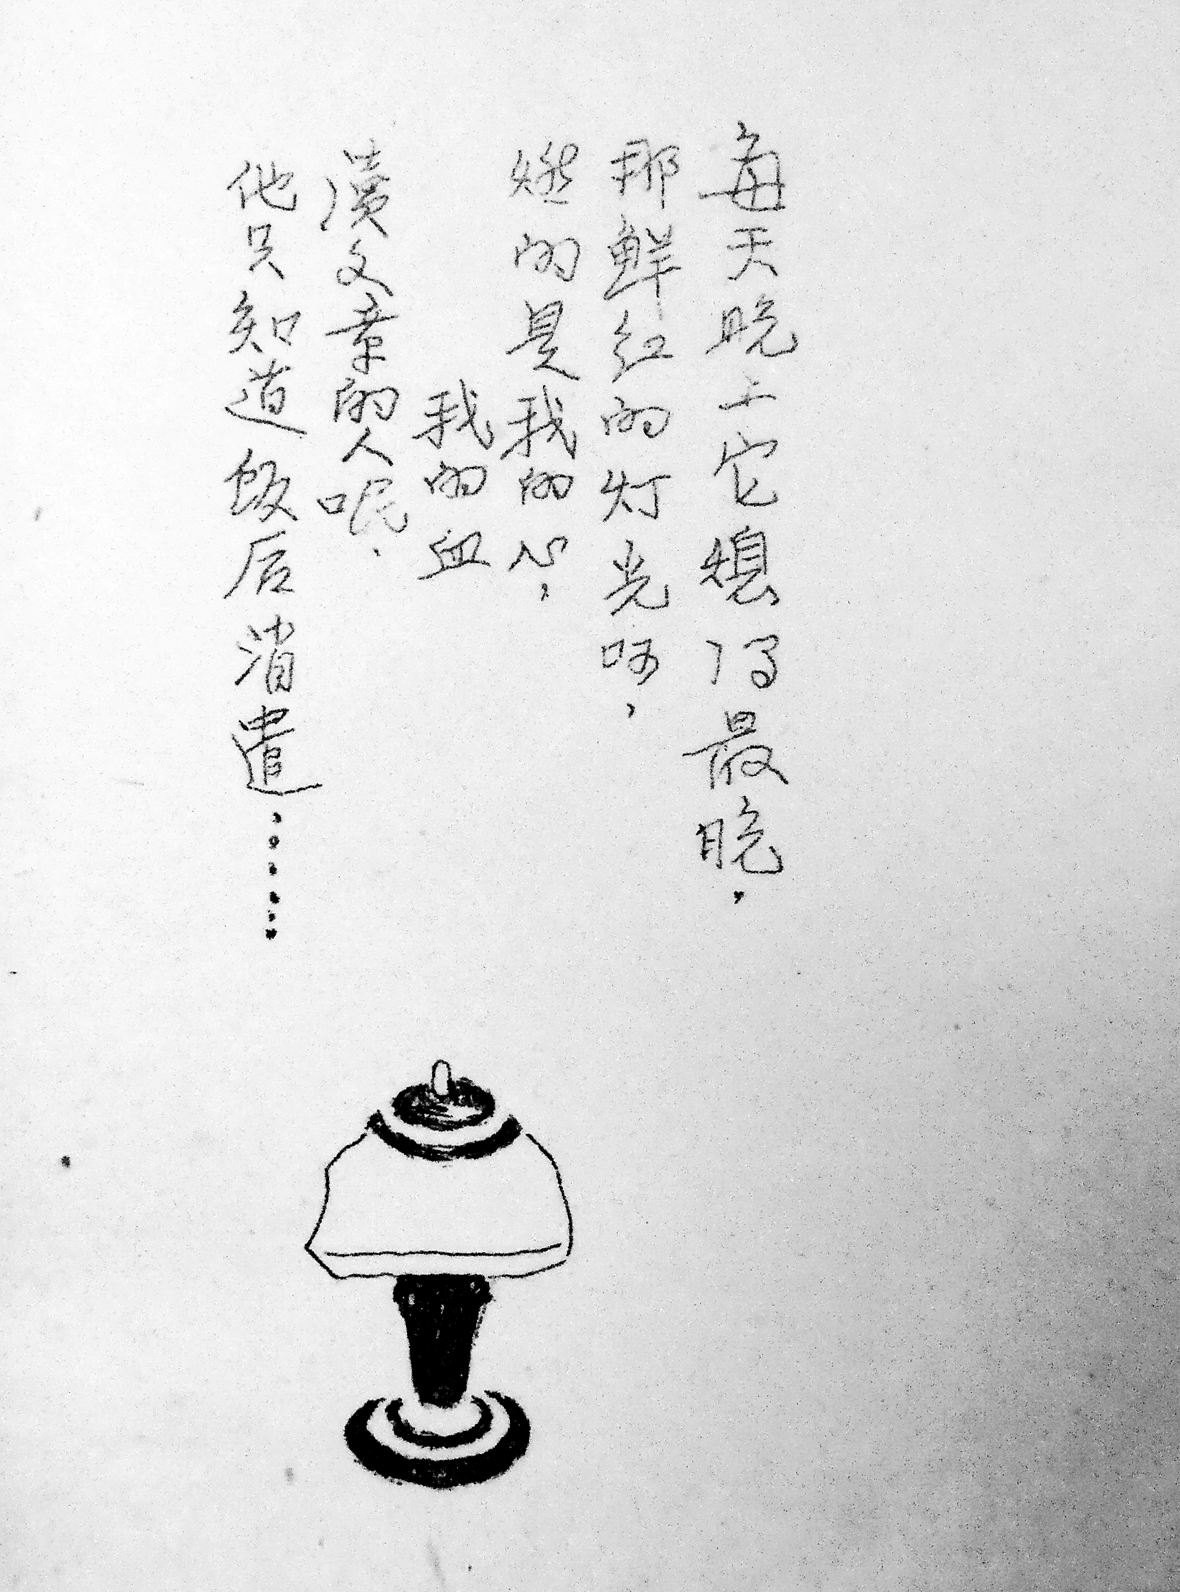 每天晚上它熄得最晚，
那鲜红的灯光呀，
燃的是我的心，
我的血
读文章的人呢，
他只知道饭后消遣……